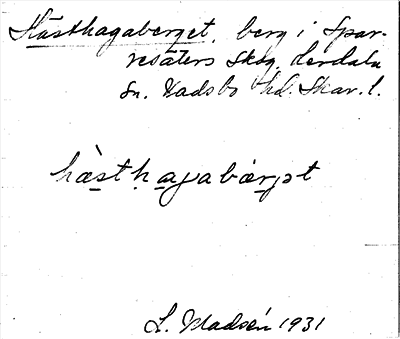 Hästhagaberget, berg i Spar-
resäters skog, Lerdala
sn. Vadsbo hd. Skar. l.
hästhagabärjət
L. Madsén 1931